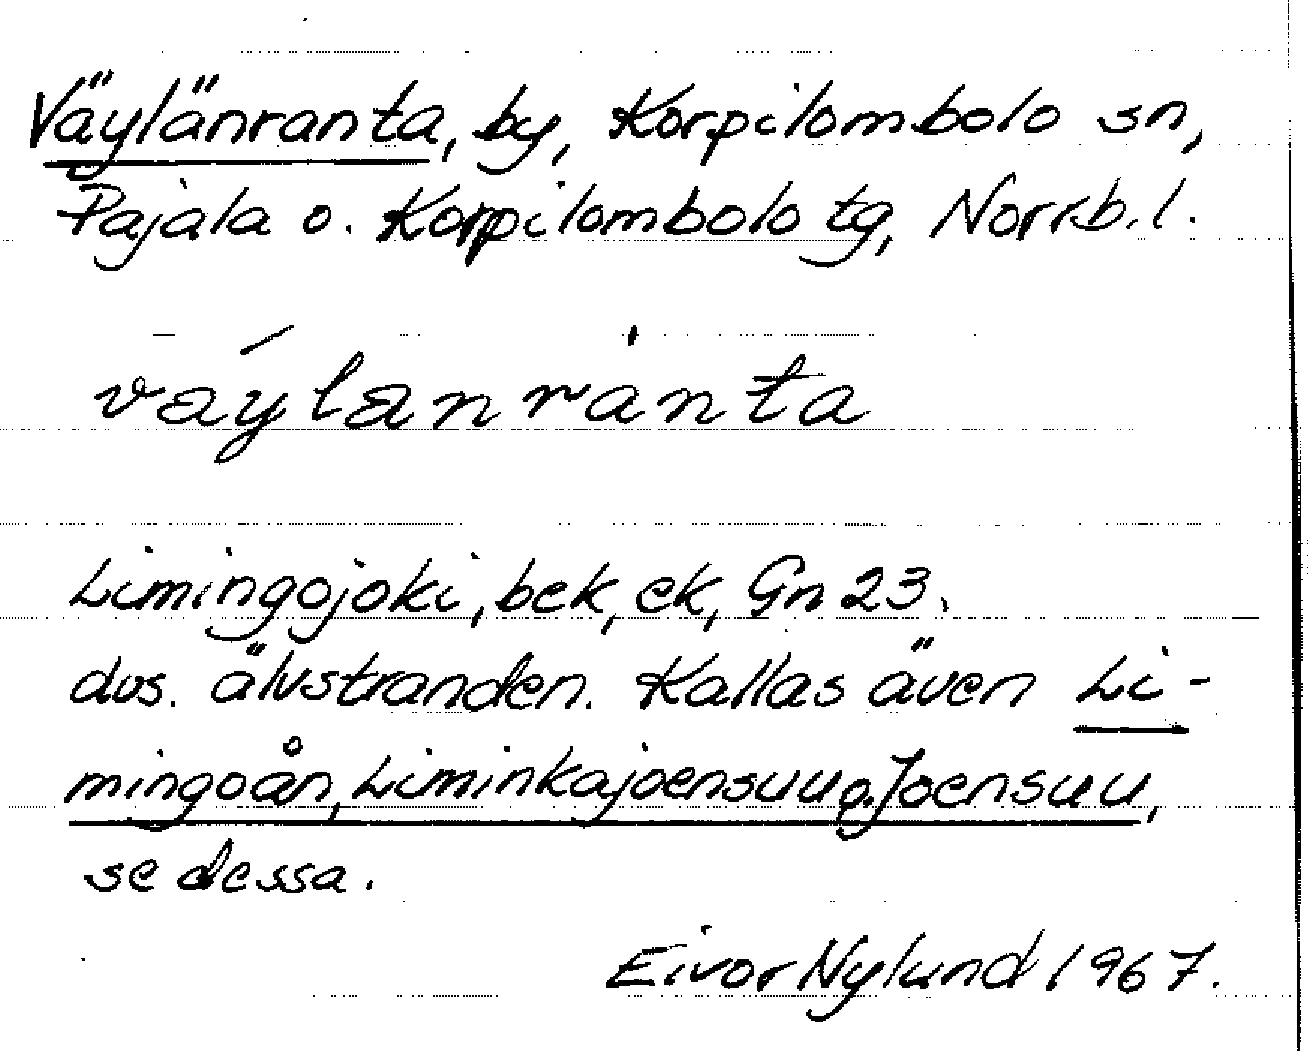 Väylänranta, by, Korpilombolo sn,
Pajala o. Korpilombolo tg, Norrb. l.
vǽylænrànta
Limingojoki, bek, ek, Gn 23.
dvs. älvstranden. Kallas även Li-
mingoån, Liminkajoensuu o. Joensuu,
se dessa.
Eivor Nylund 1967.